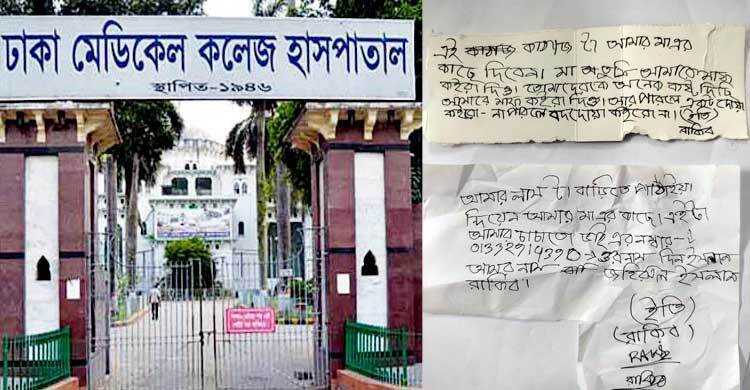 ঢাকা মেডিকেল কলেজ হাসপাতাল
স্থাপিত-১৯৪৬
এই কাগজ টা আমার মা এর
কাছে দিবেন। মা তুমি আমাকে মাফ
কইরা দিও। তোমাদেরকে অনেক কষ্ট দিছি
আমারে মাফ কইরা দিও। আর পারলে একটু দোয়া
কইরো - না পারলে বদদোয়া কইরো না। (ইতি)
রাকিব
আমার লাশ টা বাড়িতে পাঠাইয়া
দিয়েন আমার মা এর কাছে। এই টা
আমার চাচাতো ভাই এর নাম্বার-
ওর নাম দিন ইসলাম
আমার নাম জহিরুল ইসলাম
রাকিব।
(ইতি)
(রাকিব)
রাকিব